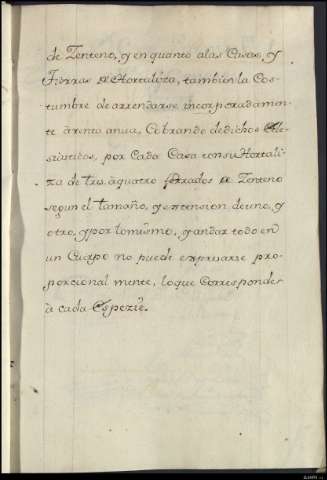 de Zenteno, y en quanto alas Casas, y
Tierras de Hortaliza, tambien la Cos-
tumbre de arrendarse incorporadamen-
te à rento anua, Cobrando de dichos Ecle-
siasticos, por Cada Casa con su Hortali-
za de tres, à quatro ferrados de Zenteno
segun el tamaño, y extension de uno, y
otro, y por lo mismo, y andar todo en
un Cuerpo no puede expresarse pro-
porcional mente, lo que Corresponde
à cada Espezie.